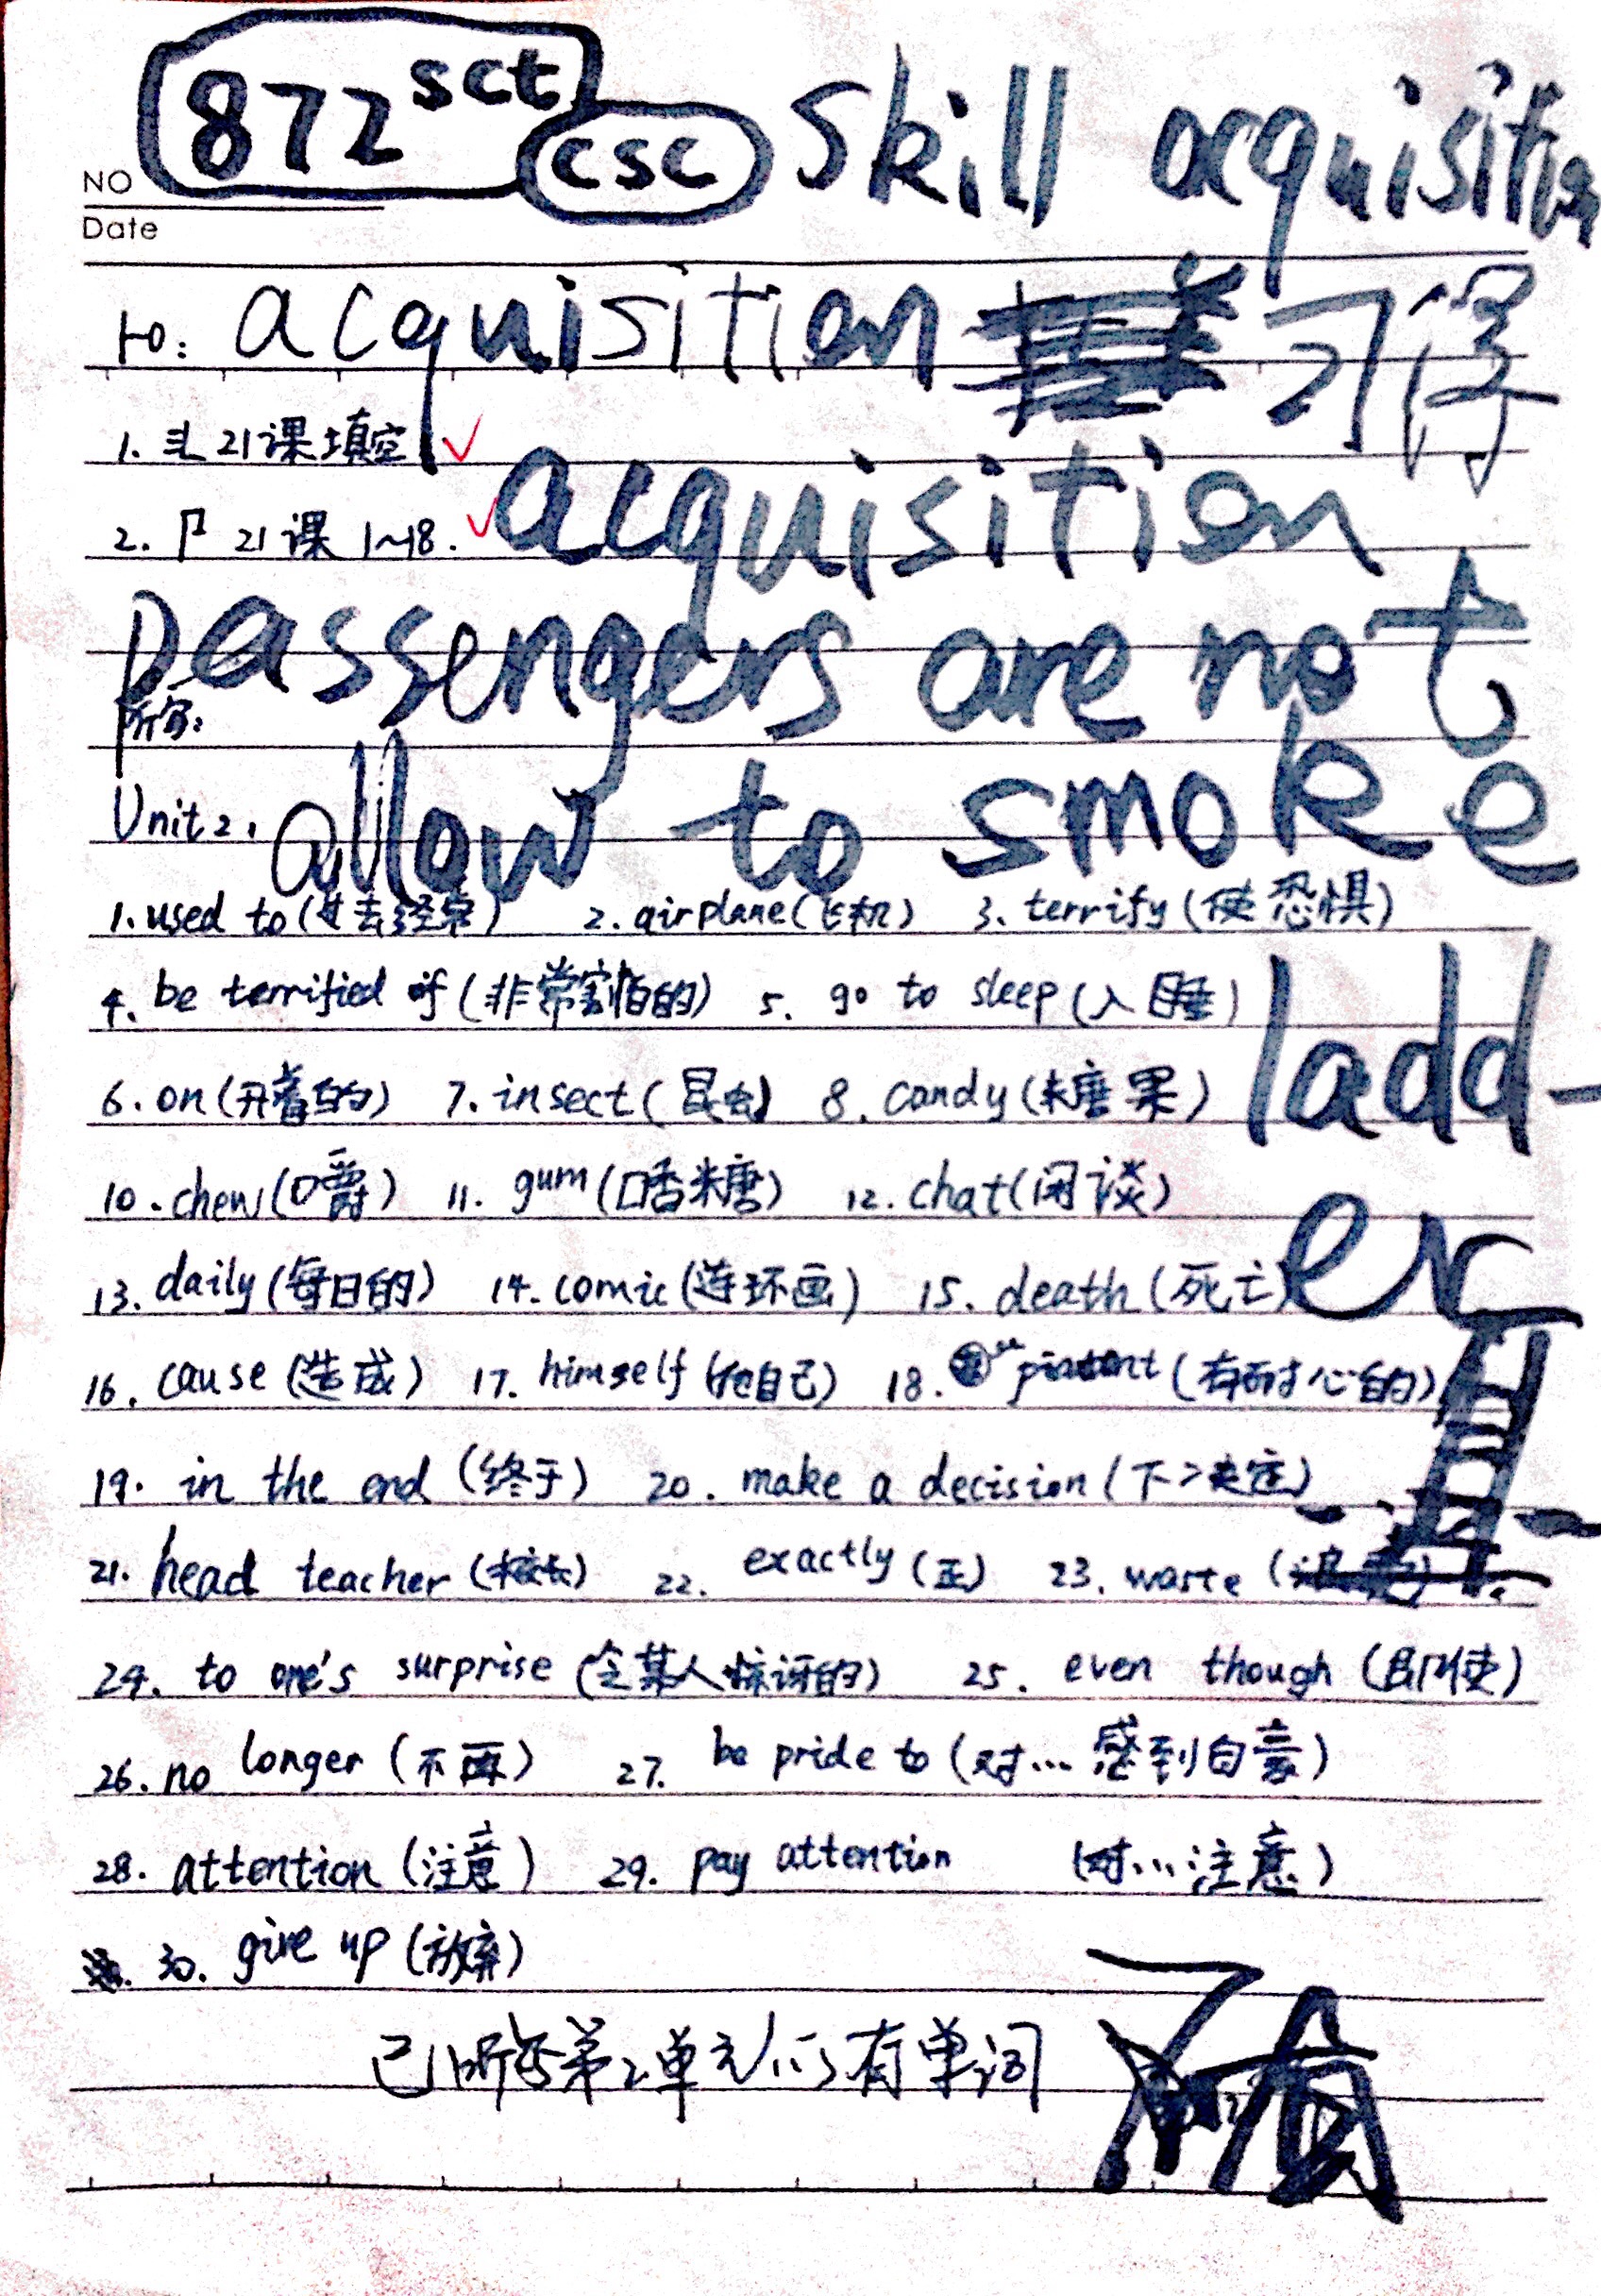 872 sct
csc
Skill acquisition
NO
Date
H0: acquisition 习得
1. 21课填空
acquisition
2. 21课 1~18.
passengers are not
听写:
Unit 2. allow to smoke
1. used to (过去经常) 2. airplane (飞机) 3. terrify (使恐惧)
4. be terrified of (非常害怕的) 5. go to sleep (入睡)
ladd-
6. on (开着的) 7. insect (昆虫) 8. candy (糖果)
10. chew (嚼) 11. gum (口香糖) 12. chat (闲谈)
er
13. daily (每日的) 14. comic (连环画) 15. death (死亡)
16. cause (造成) 17. himself (他自己) 18. (有耐心的)
19. in the end (终于) 20. make a decision (下决定)
21. head teacher (校长) 22. exactly (正) 23. waste
24. to one's surprise (令某人惊讶的) 25. even though (即使)
26. no longer (不再) 27. be pride to (对…感到自豪)
28. attention (注意) 29. pay attention (对…注意)
30. give up (放弃)
已听写第2单元所有单词